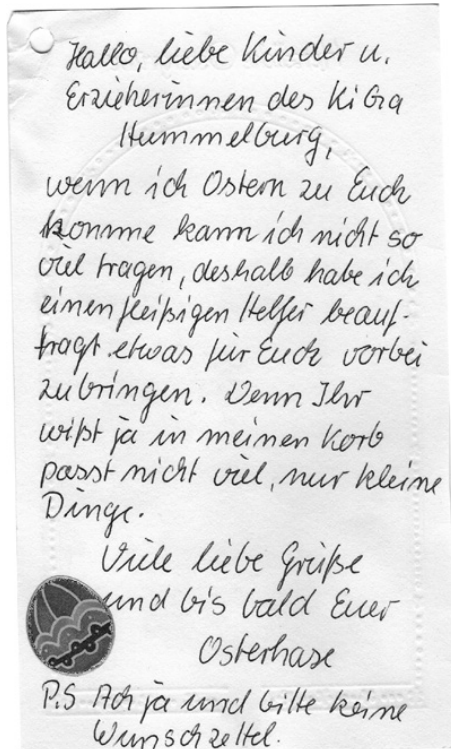 Hallo, liebe Kinder u.
Erzieherinnen des KiGa
Hummelburg,
wenn ich Ostern zu Euch
komme kann ich nicht so
viel tragen, deshalb habe ich
einen fleißigen Helfer beauf-
tragt etwas für Euch vorbei
zubringen. Denn Ihr
wißt ja in meinen Korb
passt nicht viel, nur kleine
Dinge.
Viele liebe Grüße
und bis bald Euer
Osterhase
P.S Ach ja und bitte keine
Wunschzettel.